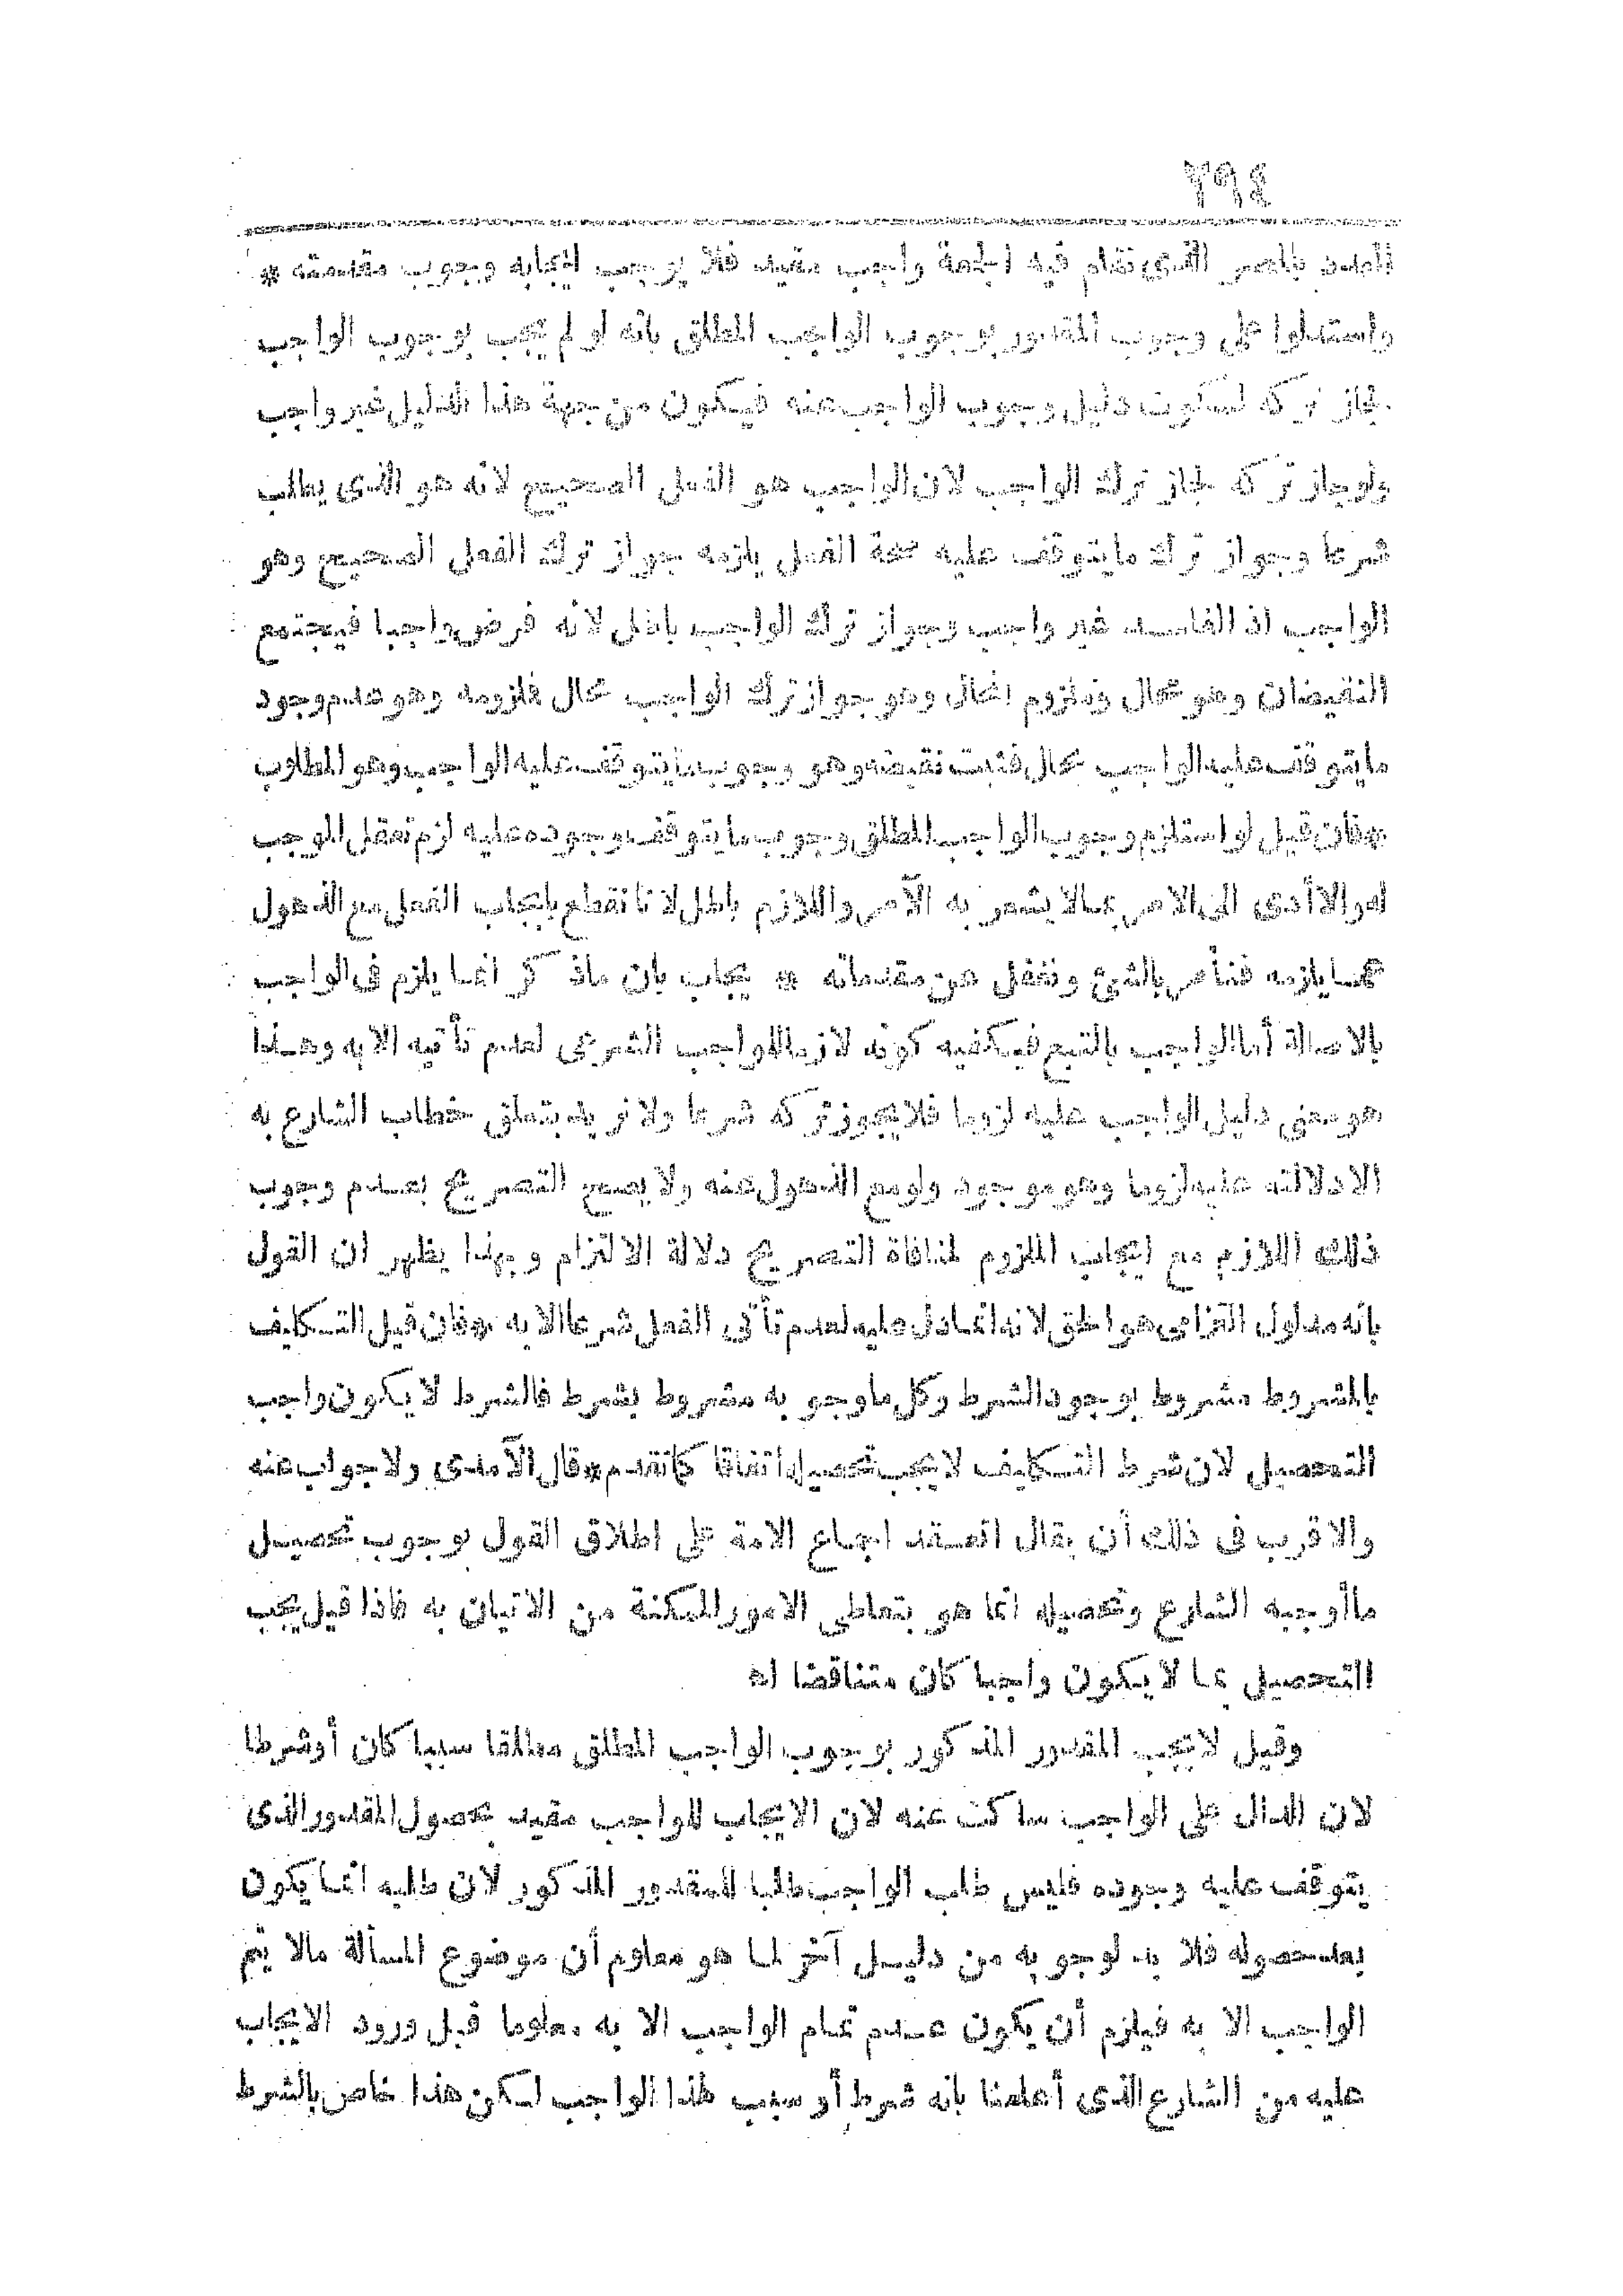 ٢٩٤
العدد بالمصر الذى تقام فيه الجمعة واجب مقيد فلا يوجب ايجابه وجوب مقدمته *
واستدلوا على وجوب المقدور بوجوب الواجب المطلق بانه لو لم يجب بوجوب الواجب
لجاز تركه لسكوت دليل وجوب الواجب عنه فيكون من جهة هذا الدليل غير واجب
ولو جاز تركه لجاز ترك الواجب لان الواجب هو الفعل الصحيح لانه هو الذى يطلب
شرعا وجواز ترك ما يتوقف عليه صحة الفعل يلزمه جواز ترك الفعل الصحيح وهو
الواجب اذ الفاسد غير واجب وجواز ترك الواجب باطل لانه فرض واجبا فيجتمع
النقيضان وهو محال وملزوم المحال وهو جواز ترك الواجب محال فلزومه وهو عدم وجود
ما يتوقف عليه الواجب محال فثبت نقيضه وهو وجوب ما يتوقف عليه الواجب وهو المطلوب
* فان قيل لو استلزم وجوب الواجب المطلق وجوب ما يتوقف وجوده عليه لزم تعقل الموجب
له والا أدى الى الامر بما لا يشعر به الآمر واللازم باطل لانا نقطع بايجاب الفعل مع الذهول
عما يلزمه فنأمر بالشئ ونغفل عن مقدماته * يجاب بان ماذكر انما يلزم فى الواجب
بالاصالة أما الواجب بالتبع فيكفيه كونه لازما للواجب الشرعى لعدم تأتيه الا به وهذا
هو معنى دليل الواجب عليه لزوما فلا يجوز تركه شرعا ولا نريد بتعلق خطاب الشارع به
الا دلالته عليه لزوما وهو موجود ولو مع الذهول عنه ولا يصح التصريح بعدم وجوب
ذلك اللازم مع ايجاب الملزوم لمنافاة التصريح دلالة الالتزام وبهذا يظهر ان القول
بانه مدلول التزامى هو الحق لانه انما دل عليه لعدم تأتى الفعل شرعا الا به * فان قيل التكليف
بالمشروط مشروط بوجود الشرط وكل ما وجوبه مشروط بشرط فالشرط لا يكون واجب
التحصيل لان شرط التكليف لا يجب تحصيله اتفاقا كما تقدم * قال الآمدى ولا جواب عنه
والاقرب فى ذلك أن يقال انعقد اجماع الامة على اطلاق القول بوجوب تحصيل
ما أوجبه الشارع وتحصيله انما هو بتعاطى الامور الممكنة من الاتيان به فاذا قيل يجب
التحصيل بما لا يكون واجبا كان متناقضا اه
وقيل لا يجب المقدور المذكور بوجوب الواجب المطلق مطلقا سببا كان أو شرطا
لان الدال على الواجب ساكت عنه لان الايجاب للواجب مقيد بحصول المقدور الذى
يتوقف عليه وجوده فليس طلب الواجب طلبا للمقدور المذكور لان طلبه انما يكون
بعد حصوله فلا بد لوجوبه من دليل آخر لما هو معلوم أن موضوع المسألة مالا يتم
الواجب الا به فيلزم أن يكون عدم تمام الواجب الا به معلوما قبل ورود الايجاب
عليه من الشارع الذى أعلمنا بانه شرط أو سبب لهذا الواجب لكن هذا خاص بالشرط